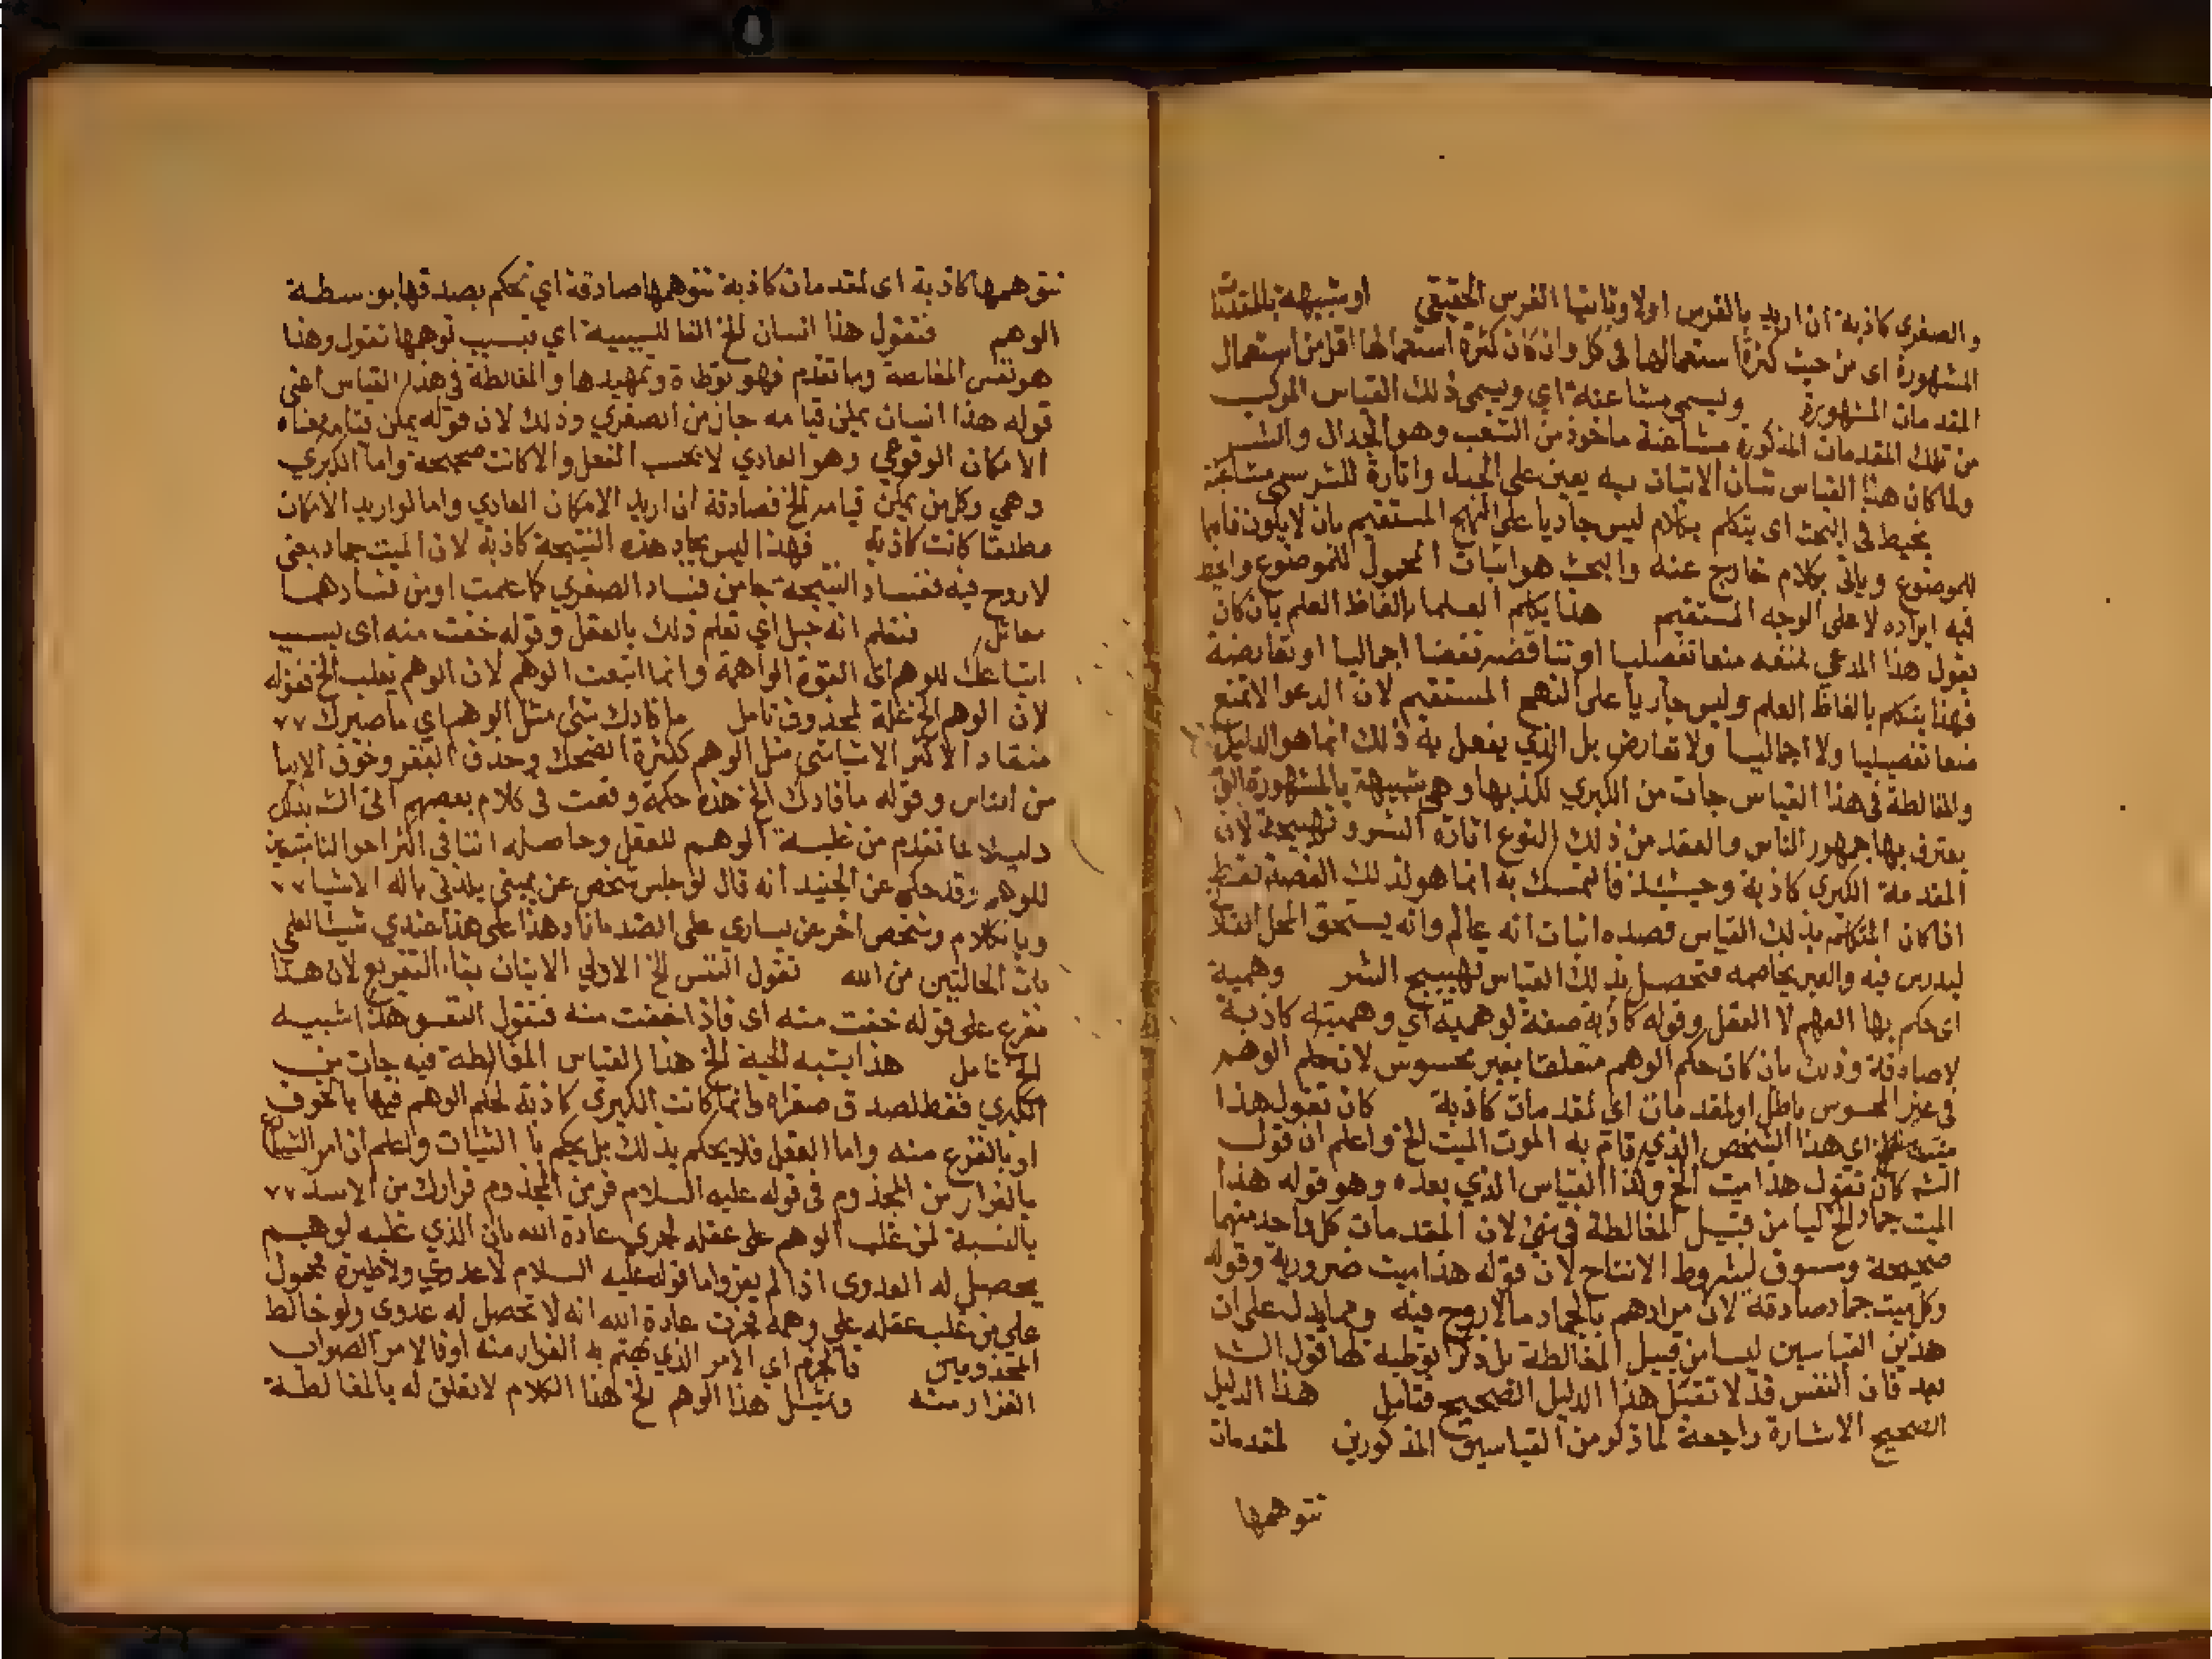 والصغرى كاذبة ان اريد بالفرس اولا وثانيا الفرس الحقيقي او شبيهة بالمقدمات
المشهورة اى من حيث كثرة استعمالها في كل وان كان كثرة استعمالها اقل من استعمال
المقدمات المشهورة ويسمى مشاغبة اي ويسمى ذلك القياس المركب
من تلك المقدمات المذكورة مشاغبة ماخوذ من الشغب وهو الجدال والشر
ولما كان هذا القياس شان الاتيان به يعين على الجدل واثارة للشر سمى مشاغبة
يخبط في البحث اى يتكلم بكلام ليس جاريا على النهج المستقيم بان لا يكون
للموضوع وياتى بكلام خارج عنه والبحث هو اثبات المحمول للموضوع والخبط
فيه ايراده لا على الوجه المستقيم هذا يكلم العلما بالفاظ العلم بان كان
يقول هذا المدعي نمنعه منعا تفصيليا او تناقضه نقضا اجماليا او تعارضة
فهذا يتكلم بالفاظ العلم وليس جاريا على النهج المستقيم لان الدعو لا تمنع
منعا تفصيليا ولا اجماليا ولا تعارض بل الذي يفعل به ذلك انما هو الدليل
والمغالطة في هذا القياس جات من الكبري لكذبها وهي شبيهة بالمشهورة التي
يعترف بها جمهور الناس والقصد من ذلك النوع اثارة الشر وتهييجه لان
المقدمة الكبرى كاذبة وحينئذ فالتمسك به انما هو لذلك
اذا كان المتكلم بذلك القياس قصده اثبات انه عالم وانه يستحق المحل
ليدرس فيه والغير يخاصمه فتحصل بذلك القياس تهييج الشر وهمية
اى حكم بها الوهم لا العقل وقوله كاذبة صفة لوهمية اي وهمية كاذبة
لا صادقة وذلك بان كان حكم الوهم متعلقا بغير محسوس لان حكم الوهم
في غير المحسوس باطل او لمقدمات اى لمقدمات كاذبة كان تقول هذا
ميت اى هذا الشخص الذي قام به الموت الميت الخ واعلم ان قول
الشـ كان تقول هذا ميت الخ وكذا القياس الذي بعده وهو قوله هذا
الميت جماد الخ ليسا من قبيل المغالطة في شئ لان المقدمات كل واحد منهما
صحيحة ومستوف لشروط الانتاج لان قوله هذا ميت ضرورية وقوله
وكل ميت جماد صادقة لان مرادهم بالجماد مالا روح فيه ومما يدل على ان
هذين القياسين ليسا من قبيل المغالطة بل ذكر توطية لها قول الشـ
بعد فان النفس قد لا تقبل هذا الدليل الصحيح فتامل هذا الدليل
الصحيح الاشارة راجعة لما ذكر من القياسين المذكورين لمقدمات
تتوهمها
تتوهمها كاذبة اى لمقدمات كاذبة تتوهمها صادقة اي تحكم بصدقها بواسطة
الوهم فتقول هذا انسان الخ الفا للسببية اي فبسبب توهمها تقول وهذا
هو نفس المغالطة وما تقدم فهو توطاة وتمهيد لها والمغالطة في هذا القياس اعنى
قوله هذا انسان يمكن قيامه جات من الصغري وذلك لان قوله يمكن قيامه معناه
الامكان الوقوعي وهو العادي لا بحسب العقل والا كانت صحيحة واما الكبري
وهي وكل من يمكن قيامه الخ فصادقة ان اريد الامكان العادي واما لو اريد الامكان
مطلقا كانت كاذبة فهذا ليس بجاد هذه النتيجة كاذبة لان الميت جماد بمعنى
لا روح فيه ففساد النتيجة جا من فساد الصغري كما علمت او من فسادهما
معا تامل فتعلم انه حبل اي تعلم ذلك بالعقل وقوله خفت منه اى بسبب
اتباعك للوهم اى القوة الواهمة وانما اتبعت الوهم لان الوهم يغلب الخ فقوله
لان الوهم الخ علة لمحذوف تامل ما قادك شى مثل الوهم اي ما صيرك
منقادا لاكثر الاشيا شى مثل الوهم ككثرة الضحك وحدف الفقر وخوف الايذا
من الناس وقوله ما قادك الخ هذه حكمة وقعت في كلام بعضهم اتى الشـ بتلك
دليلا لما تقدم من غلبة الوهم للعقل وحاصله اننا في اكثر احوالنا متبعين
للوهم وقد حكى عن الجنيد انه قال لو جلس شخص عن يمينى يلذنى باله الاشيا
وبالكلام وشخص اخر عن يساري على الضد ما زاد هذا على هذا عندي شيا لعلمي
بان الحالتين من الله تقول النفس الخ الاولى الاتيان بفا التفريع لان هذا
مفرع على قوله خفت منه اى فاذا خفت منه فتقول النفس هذا شبيه
الخ تامل هذا يشبه الحية الخ هذا القياس المغالطة فيه جات من
الكبري فقط لصدق صغراه وانما كانت الكبرى كاذبة لحكم الوهم فيها بالخوف
او بالفزع منه واما العقل فلا يحكم بذلك بل يحكم با الثبات واعلم ان امر الشارع
بالفرار من المجذوم في قوله عليه السلام فر من المجذوم فرارك من الاسد
بالنسبة لمن غلب الوهم على عقله لجري عادة الله بان الذي غلبه لوهم
يحصل له العدوى اذا لم يفر واما قوله عليه السلام لا عدوي ولا طيرة محمول
على من غلب عقله على وهمه فجرت عادة الله انه لا تحصل له عدوى ولو خالط
المجذومين فالجزم اي الامر الذي تهتم به الفرار منه او فالامر الصواب
الفرار منه ومثل هذا الوهم الخ هذا الكلام لا تعلق له بالمغالطة